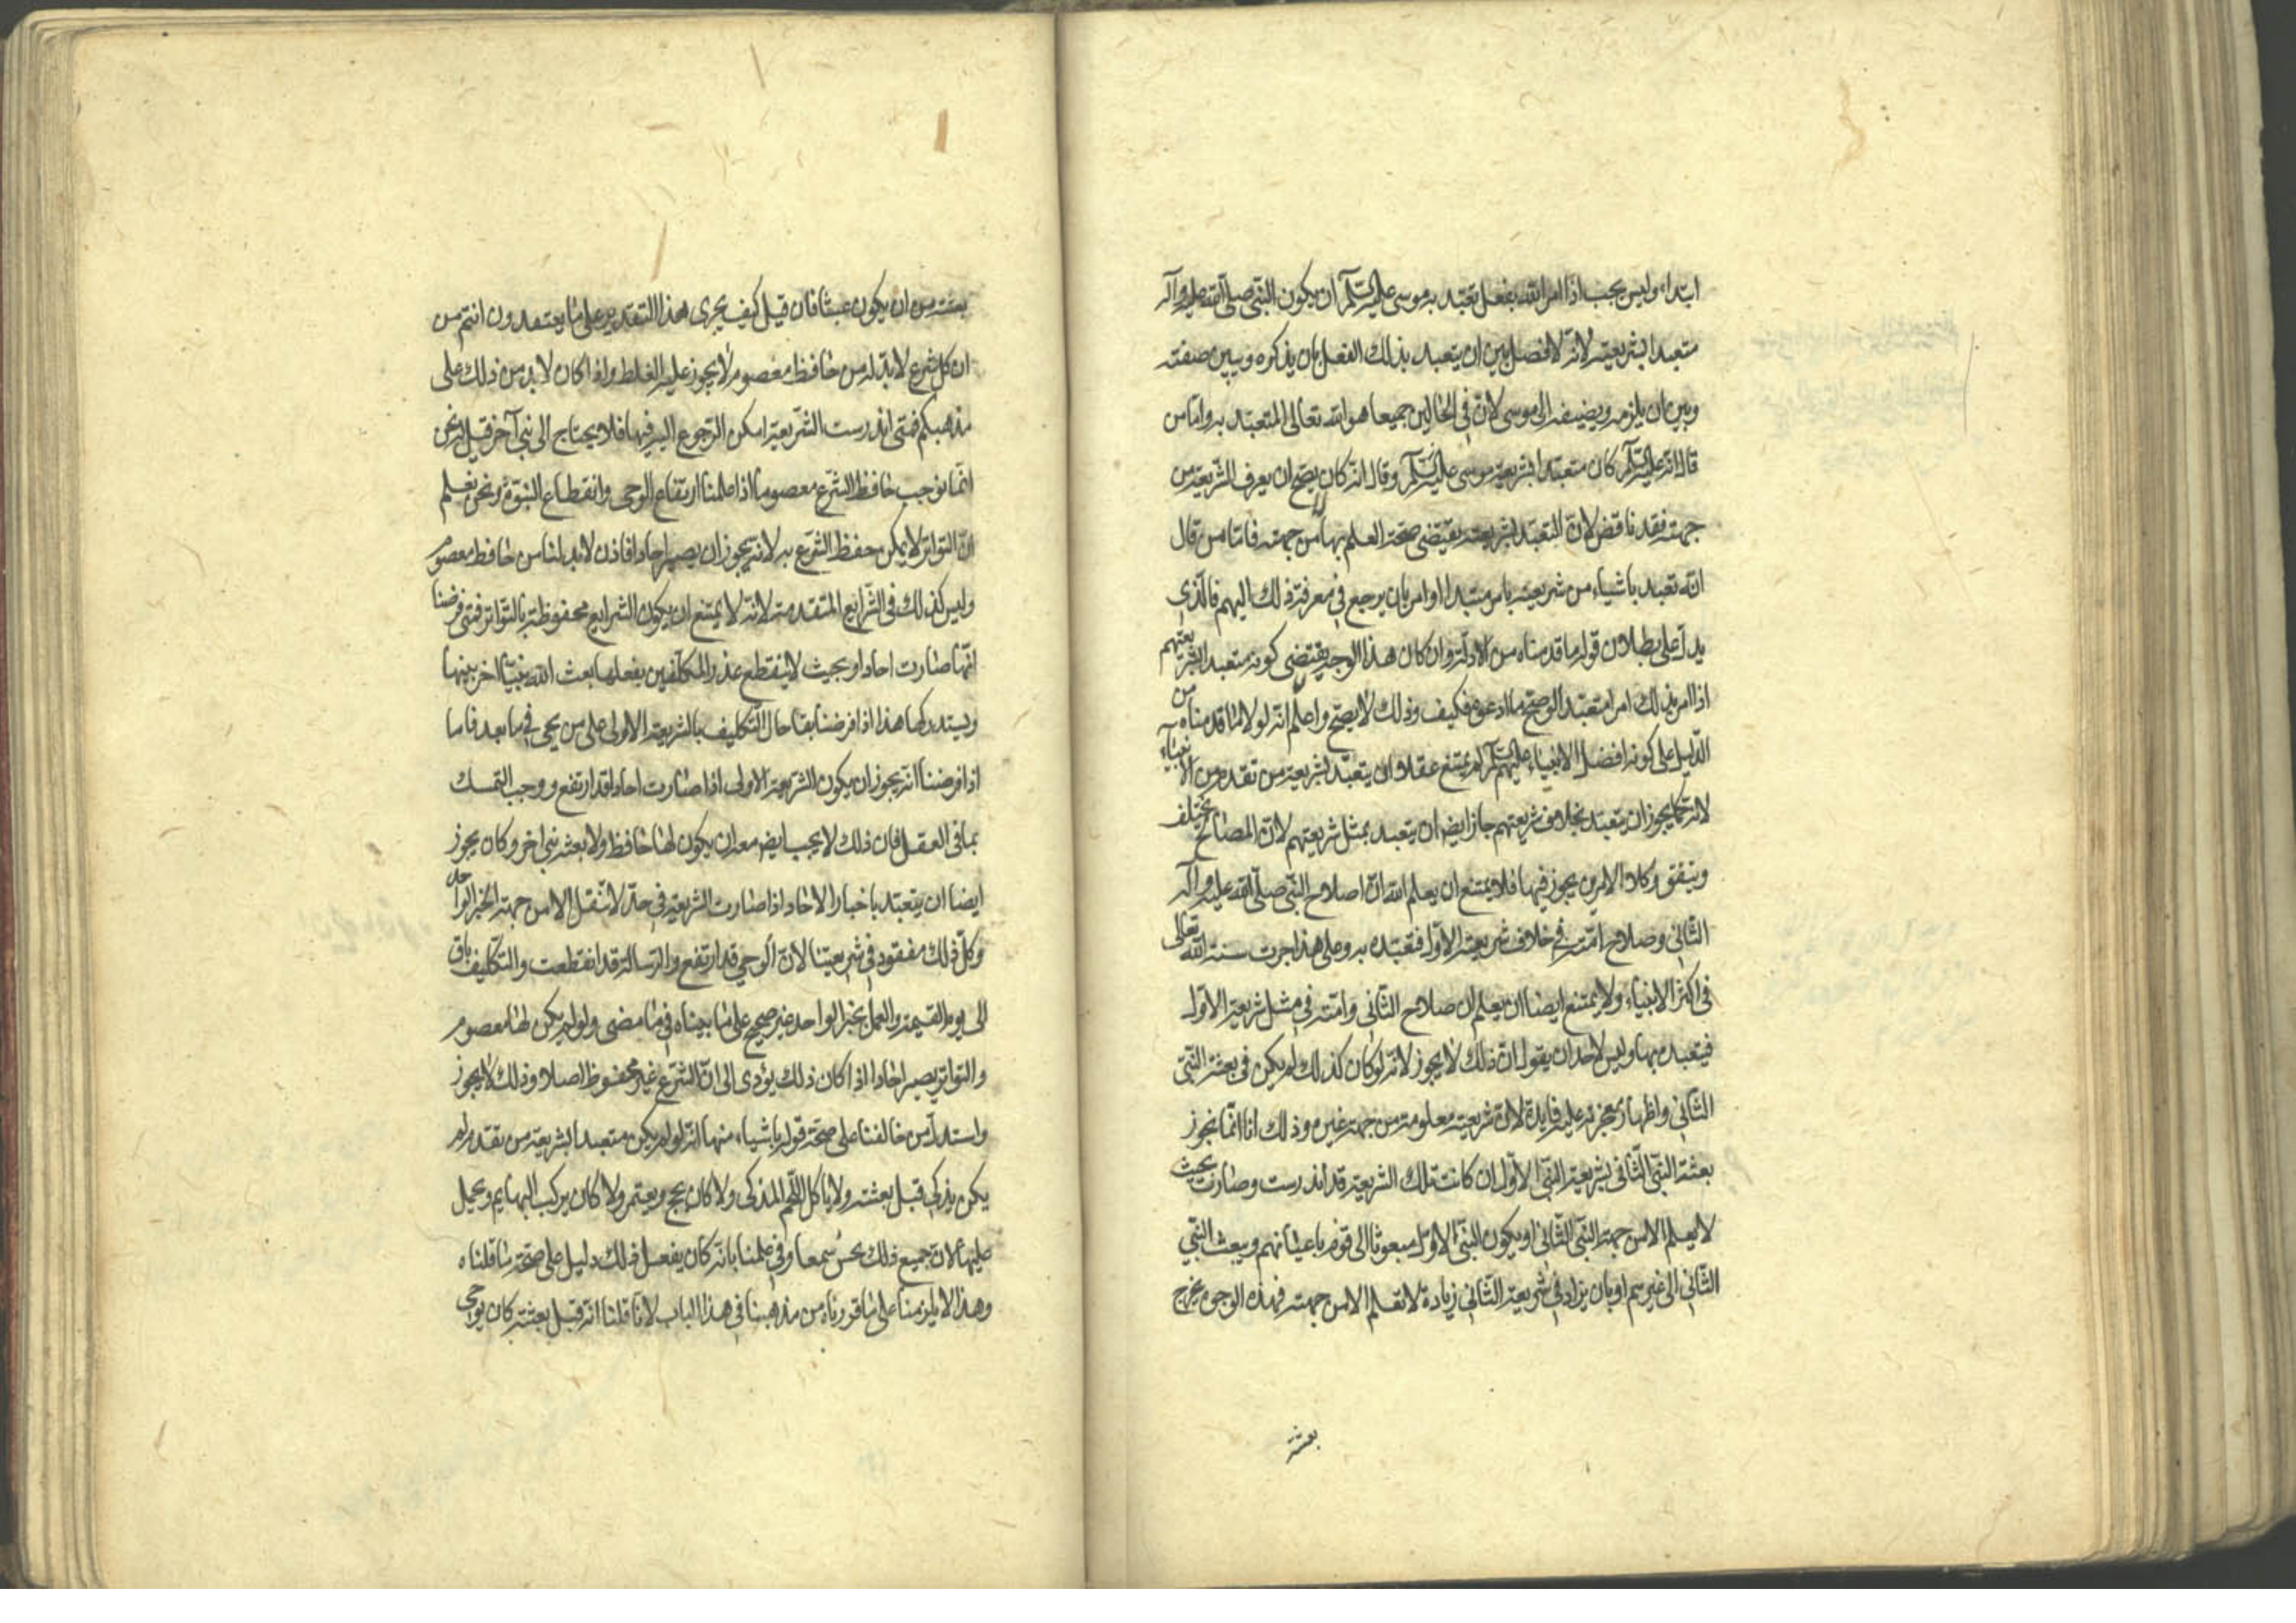 ابتداء وليس يجب اذا امر الله بفعل تعبد به موسى عليه السلم ان يكون النبى صلى الله عليه وآله
متعبدا بشريعته لانه لا فصل بين ان يتعبد بذلك الفعل بان يذكره ويبين صفته
وبين ان يلزمه ويضيفه الى موسى لان فى الحالين جميعا هو الله تعالى المتعبد به واما من
قال انه عليه السلم كان متعبدا بشريعة موسى عليه السلم وقال انه كان يصح ان يعرف الشريعة من
جهته فقد ناقض لان التعبد بشريعته يقتضى صحة العلم بها من جهته فاما من قال
انه تعبد باشياء من شريعته بامر مبتدا او امر بان يرجع فى معرفة ذلك اليهم فالذى
يدل على بطلان قوله ما قدمناه من الادلة وان كان هذا الوجه يقتضى كونه متعبدا بشريعتهم
اذا امر بذلك امرا متعبدا لو صح ما ادعوه فكيف وذلك لا يصح واعلم انه لولا ما قدمناه من
الدليل على كونه افضل الانبياء عليهم السلم لم يمتنع عقلا ان يتعبد بشريعة من تقدم من الانبياء
لانه كما يجوز ان يتعبد بخلاف شريعتهم جاز ايضا ان يتعبد بمثل شريعتهم لان المصالح تختلف
ويتفق وكلا الامرين يجوز فيها فلا يمتنع ان يعلم الله ان اصلاح النبى صلى الله عليه وآله
الثانى وصلاح امته فى خلاف شريعة الاول فتعبده به وعلى هذا جرت سنة الله تعالى
فى اكثر الانبياء ولا يمتنع ايضا ان يعلم ان صلاح الثانى وامته فى مثل شريعة الاول
فيتعبده بها وليس لاحد ان يقول ان ذلك لا يجوز لانه لو كان كذلك لم يكن فى بعثة النبى
الثانى واظهار معجزته عليه فايدة لان شريعته معلومة من جهة غيره وذلك انا انما نجوز
بعثة النبى الثانى بشريعة النبى الاول ان كانت تلك الشريعة قد اندرست وصارت بحيث
لا يعلم الا من جهة النبى الثانى او يكون النبى الاول مبعوثا الى قوم باعيانهم ويبعث النبى
الثانى الى غيرهم او بان يزاد فى شريعة الثانى زيادة لا تعلم الا من جهته فبهذه الوجوه يخرج
بعثته
بعثته من ان يكون عبثا فان قيل كيف يجرى هذا التقدير على ما يعتقدون انتم من
ان كل شرع لا بد له من حافظ معصوم لا يجوز عليه الغلط واذا كان لا بد من ذلك على
مذهبكم فمتى اندرست الشريعة امكن الرجوع اليه فيها فلا يحتاج الى نبى آخر قيل له نحن
انما نوجب حافظ الشرع معصوما اذا علمنا ارتفاع الوحى وانقطاع النبوة ونحن نعلم
ان التواتر لا يمكن حفظ الشرع به لانه يجوز ان يصير احادا فاذن لا بد لنا من حافظ معصوم
وليس كذلك فى الشرايع المتقدمة لانه لا يمتنع ان يكون الشرايع محفوظة بالتواتر فمتى فرضنا
انها صارت احادا وبحيث لا ينقطع عذر المكلفين بفعلها بعث الله نبيا اخر يبينها
ويستدركها هذا اذا فرضنا بقا حال التكليف بالشريعة الاولى على من يجى فيما بعد فاما
اذا فرضنا انه يجوز ان يكون الشريعة الاولى اذا صارت احادا قد ارتفع ووجب التمسك
بما فى العقل فان ذلك لا يجب ايضا معه ان يكون لها حافظ ولا بعثة نبى اخر وكان يجوز
ايضا ان يتعبد باخبار الاحاد اذا صارت الشريعة فى حد لا تنقل الا من جهة الخبر الواحد
وكل ذلك مفقود فى شريعتنا لان الوحى قد ارتفع والرسالة قد انقطعت والتكليف باق
الى يوم القيمة والعمل بخبر الواحد غير صحيح على ما بيناه فيما مضى ولو لم يكن لها معصوم
والتواتر يصير احادا اذا كان ذلك يؤدى الى ان الشرع غير محفوظ اصلا وذلك لا يجوز
واستدل من خالفنا على صحة قوله باشياء منها انه لو لم يكن متعبدا بشريعة من تقدم لم
يكن يذكى قبل بعثته ولا ياكل اللحم المذكى ولا كان يحج ويعتمر ولا كان يركب البهايم ويحمل
عليها لان جميع ذلك يحسن سمعا وفى علمنا بانه كان يفعل ذلك دليل على صحة ما قلناه
وهذا لا يلزمنا على ما قررناه من مذهبنا فى هذا الباب لانا قلنا انه قبل بعثته كان يوحى